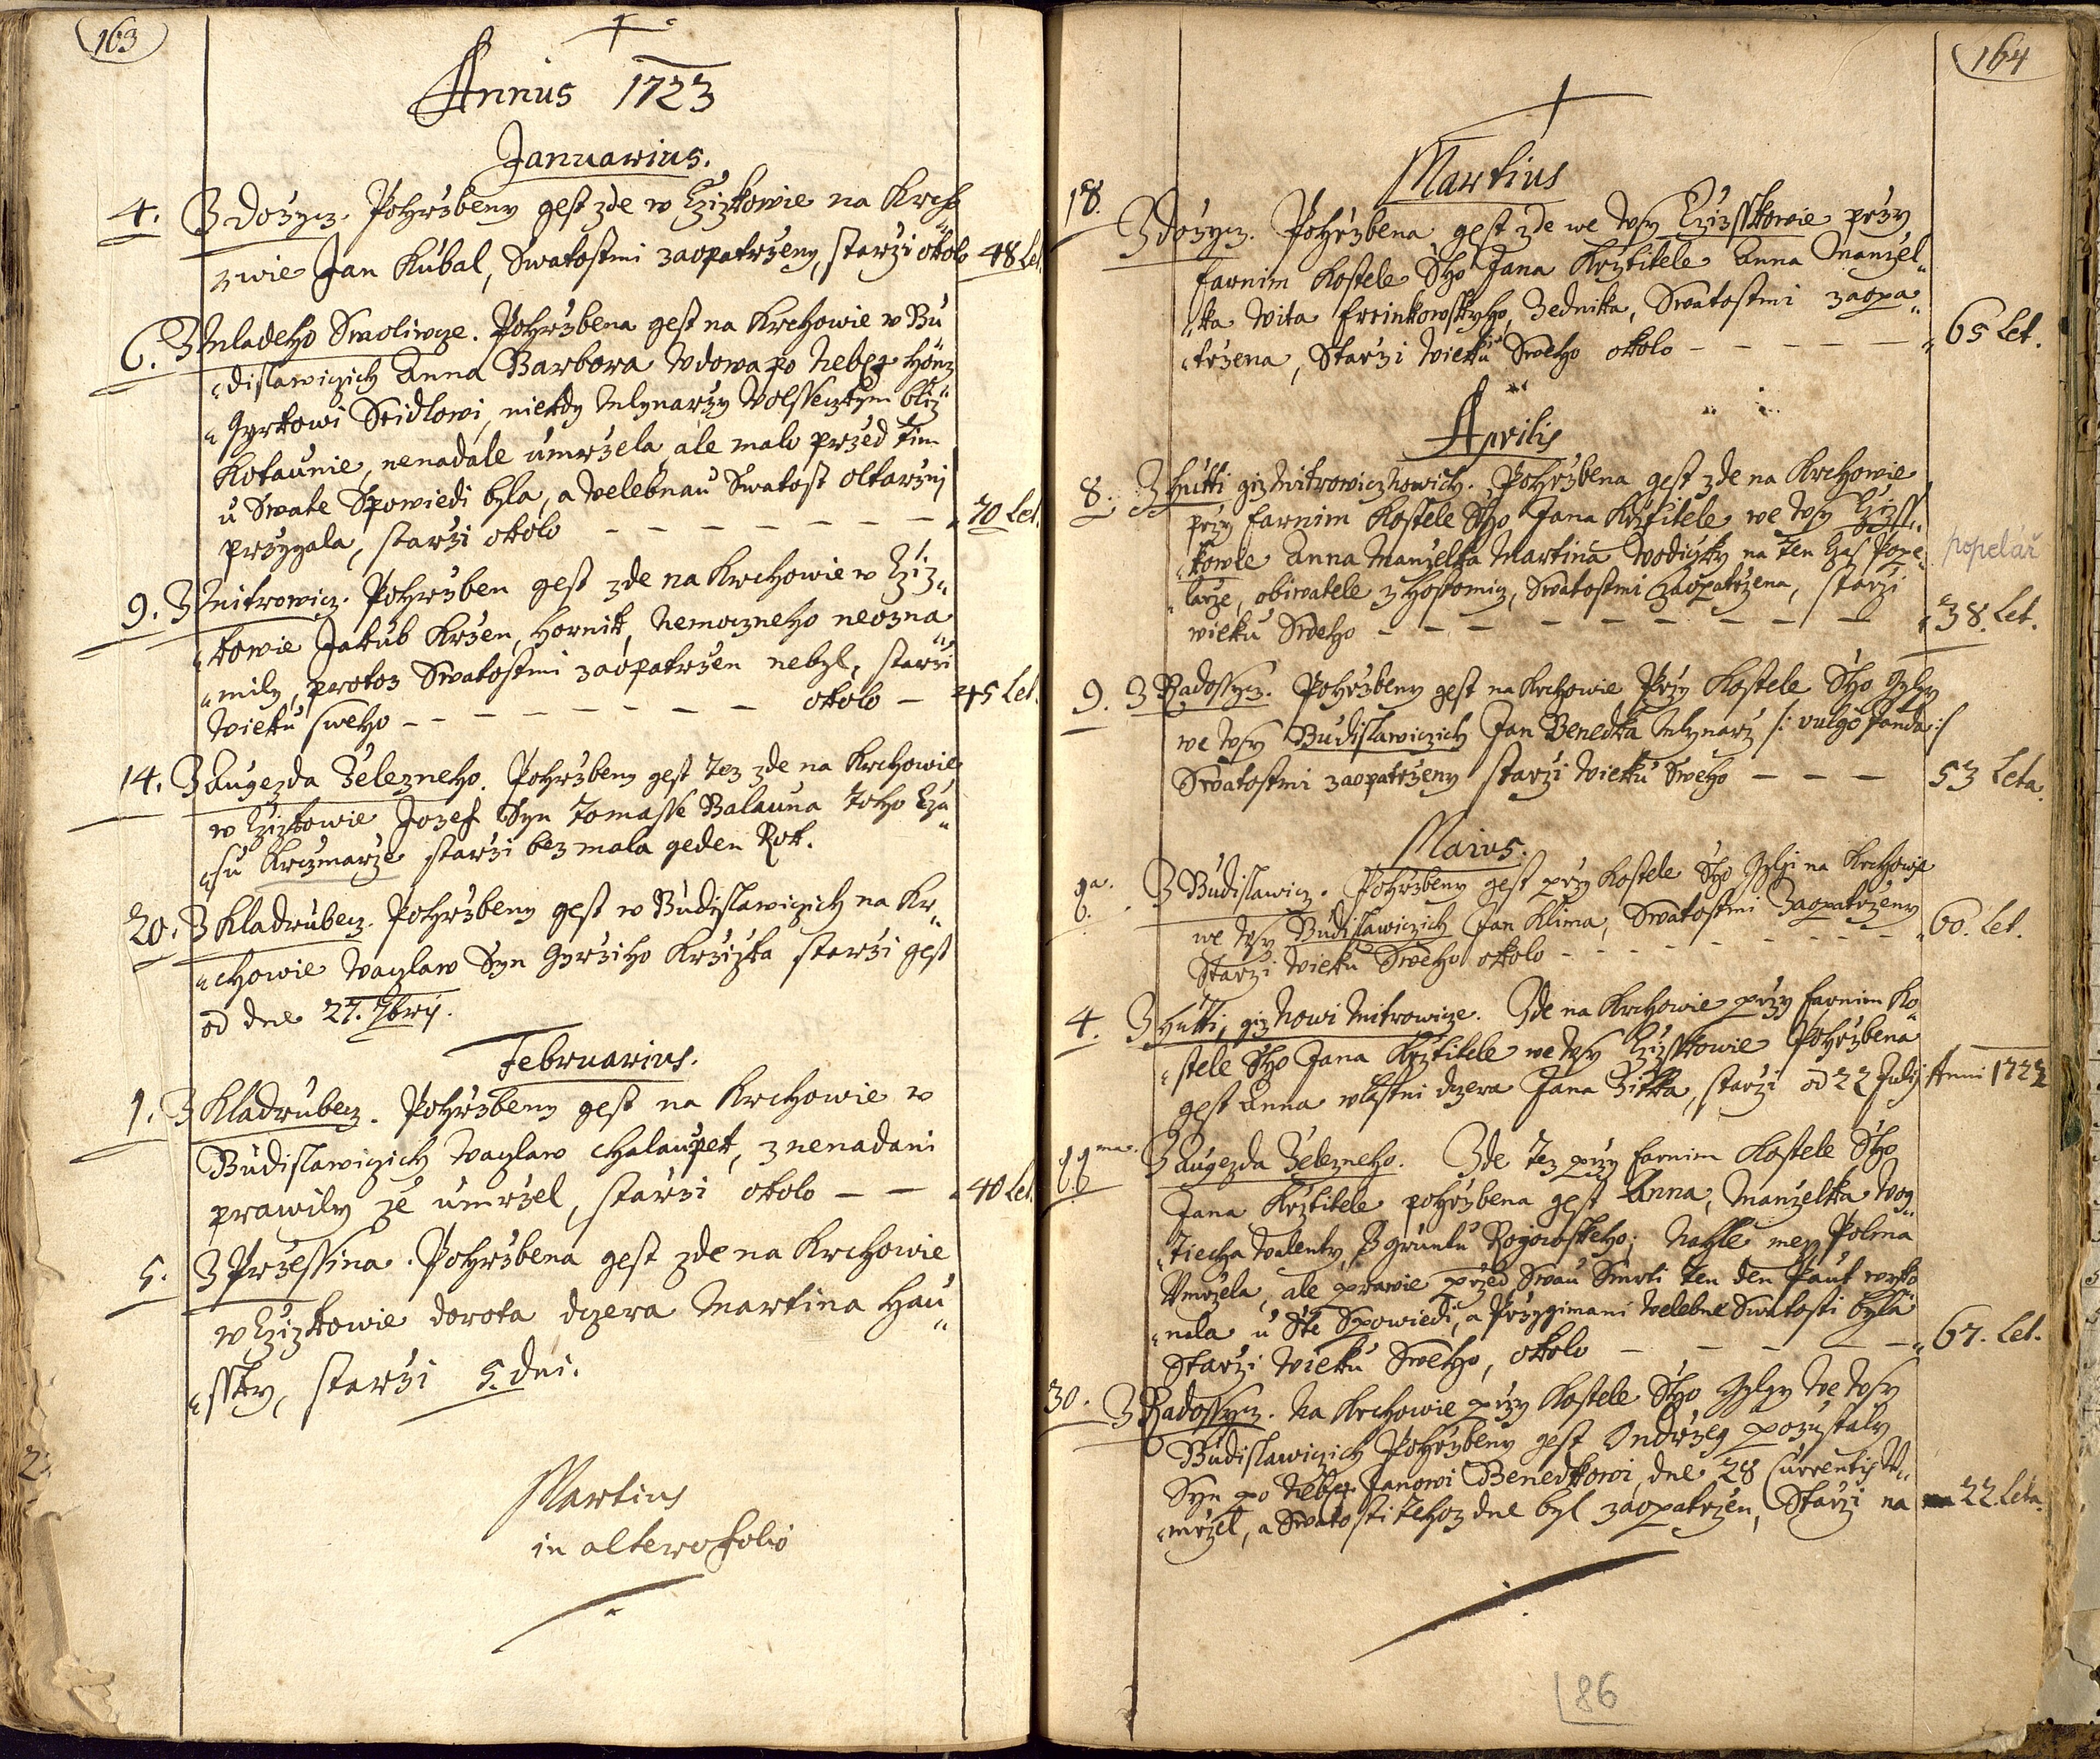 163
Annus 1723
Januarius.
4. Z Dožycz. Pohrzbeny gest zde w Cžižkowie na Krch„
owie Jan Kubal, Swatostmi zaopatrzeny, starzi okolo 48 Let.
6. Z Mladeho Smoliwcze. Pohrzbena gest na Krchowie w Bu
„dislawiczich Anna Barbora Wdowa po Nebož
„Gyrkowi Seidlowi, niekdy Mlynarzy bliž
Kotaunie, nenadále umrzela, ale malo przed tim
u Swate Spowiedi byla, a Welebnau Swatost oltarzni
przygala, starzi okolo — — — — — — — 70 Let.
9. Z Mitrowicz. Pohrzben gest zde na Krchowie w Cžiž„
„kowie Jakub Krzen, Hornik, Nemoczneho neozna
„mily, protoz Swatostmi zaopatrzen nebyl, starzi
Wieku sweho — — — — — — — — okolo — 45 Let.
14. Z Augezda Železneho. Pohrzbeny gest tez zde na Krchowie
w Cžižkowie Jozef Syn Tomasse Balauna toho Cža„
„su Krczmarze starzi bez mala geden Rok.
20. Z Kladrubecz. Pohrzbeny gest w Budislawiczich na Kr„
„chowie Waczlaw Syn Gyrziho Krzižka starzi gest
od dne 27. 7bris.
Februarius.
1. Z Kladrubecz. Pohrzbeny gest na Krchowie w
Budislawiczich Waczlaw Chalaupek, z nenadani
prawily že umrzel, starzi okolo — — 40 Let.
5. Z Przessina. Pohrzbena gest zde na Krchowie
w Cžižkowie Dorota dczera Martina Hau„
„ssky, starzi 5. dni.
Martius
in altero folio
164
Martius
18. Z Dožycz. Pohrzbena gest zde we Wsy Cžižsskowie przy
farnim Kostele Sho Jana Krztitele Anna Manžel„
„ka Wita Frinkowskyho, Zednika, Swatostmi zaopa„
„trzena, Starzi Wieku Sweho okolo — — — — — 65 Let.
Aprilis
8. Z Hutti giz Mitrowicz Nowich. Pohrzbena gest zde na Krchowie
przy farnim Kostele Sho Jana Krztitele we Wsy Cžižss„
„kowie Anna Manželka Martina Wodicžky na ten Cžas Pope„ popelář
„larze, obiwatele z Hostomicz, Swatostmi Zaopatrzena, starzi
wieku Sweho — — — — — — — — — 38. Let.
9. Z Radossycz. Pohrzbeny gest na Krchowie Przy Kostele Sho Gylgy
we Wsy Budislawiczich Jan Benedka Mlynarz /: vulgo Janda :/
Swatostmi zaopatrzeny starzi Wieku Sweho — — — 53 Leta.
Maius.
Z Budislawicz. Pohrzbeny gest przy Kostele Sho Gylgi na Krchowie
we Wsy Budislawiczich Jan Klima, Swatostmi Zaopatrzeny
Starzi Wieku Sweho okolo — — — — — — — 60. Let.
4. Z Hutti, giz Nowi Mitrowicze. Zde na Krchowie przy farnim Ko„
„stele Sho Jana Krztitele we Wsy Cžižsskowie Pohrzbena
gest Anna wlastni dczera Jana Zikka, starzi od 22 Julij Anni 1722
Z Augezda Železneho. Zde tez przy farnim Kostele Sho
Jana Krztitele pohrzbena gest Anna, Manželka Wog„
„tiecha Walenty, z gruntu Rogowskeho; Nahle mezy Polma
Umrzela, ale prawie przed Swau Smrti ten den Paut wyko
„nala u Ste Spowiedi, a Przygimani Welebne Swatosti byla
Starzi Wieku Sweho, okolo — — — — — 67. Let.
30. Z Radossycz. Na Krchowie przy Kostele Sho Gylgy we Wsy
Budislawiczich Pohrzbeny gest Ondrzeg pozustaly
Syn po Nebož. Janowi Benedkowi, dne 28 Currentis U„
„mrzel, a Swatosti tehoz dne byl zaopatrzen, Starzi na 22 Leta.
86